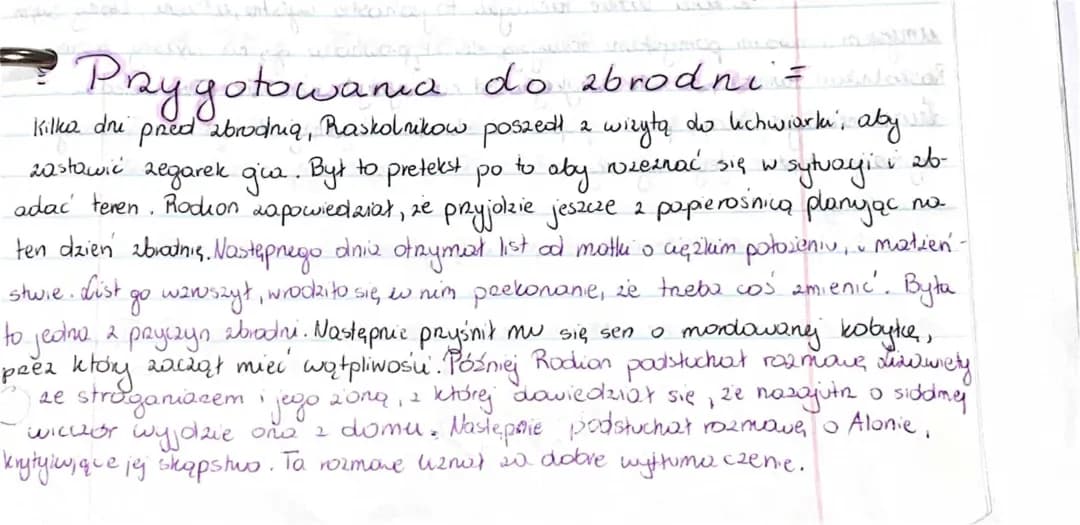 Przygotowania do zbrodni =
Kilka dni przed zbrodnią, Raskolnikow poszedł z wizytą do lichwiarki, aby
zastawić zegarek ojca. Był to pretekst po to aby rozeznać się w sytuacji i zb-
adać teren. Rodion zapowiedział, że przyjdzie jeszcze z papierośnicą planując na
ten dzień zbrodnię. Następnego dnia otrzymał list od matki o ciężkim położeniu, i małżeń-
stwie. List go wzruszył, wrodziło się w nim przekonanie, że trzeba coś zmienić. Była
to jedna z przyczyn zbrodni. Następnie przyśnił mu się sen o mordowanej kobyłce,
przez który zaczął mieć wątpliwości. Później Rodion podsłuchał rozmowę Lizawiety
ze straganiarzem i jego żoną, z której dowiedział się, że nazajutrz o siódmej
wieczór wyjdzie ona z domu. Następnie podsłuchał rozmowę o Alonie,
krytykującę jej skąpstwo. Ta rozmowe uznał za dobre wytłumaczenie.